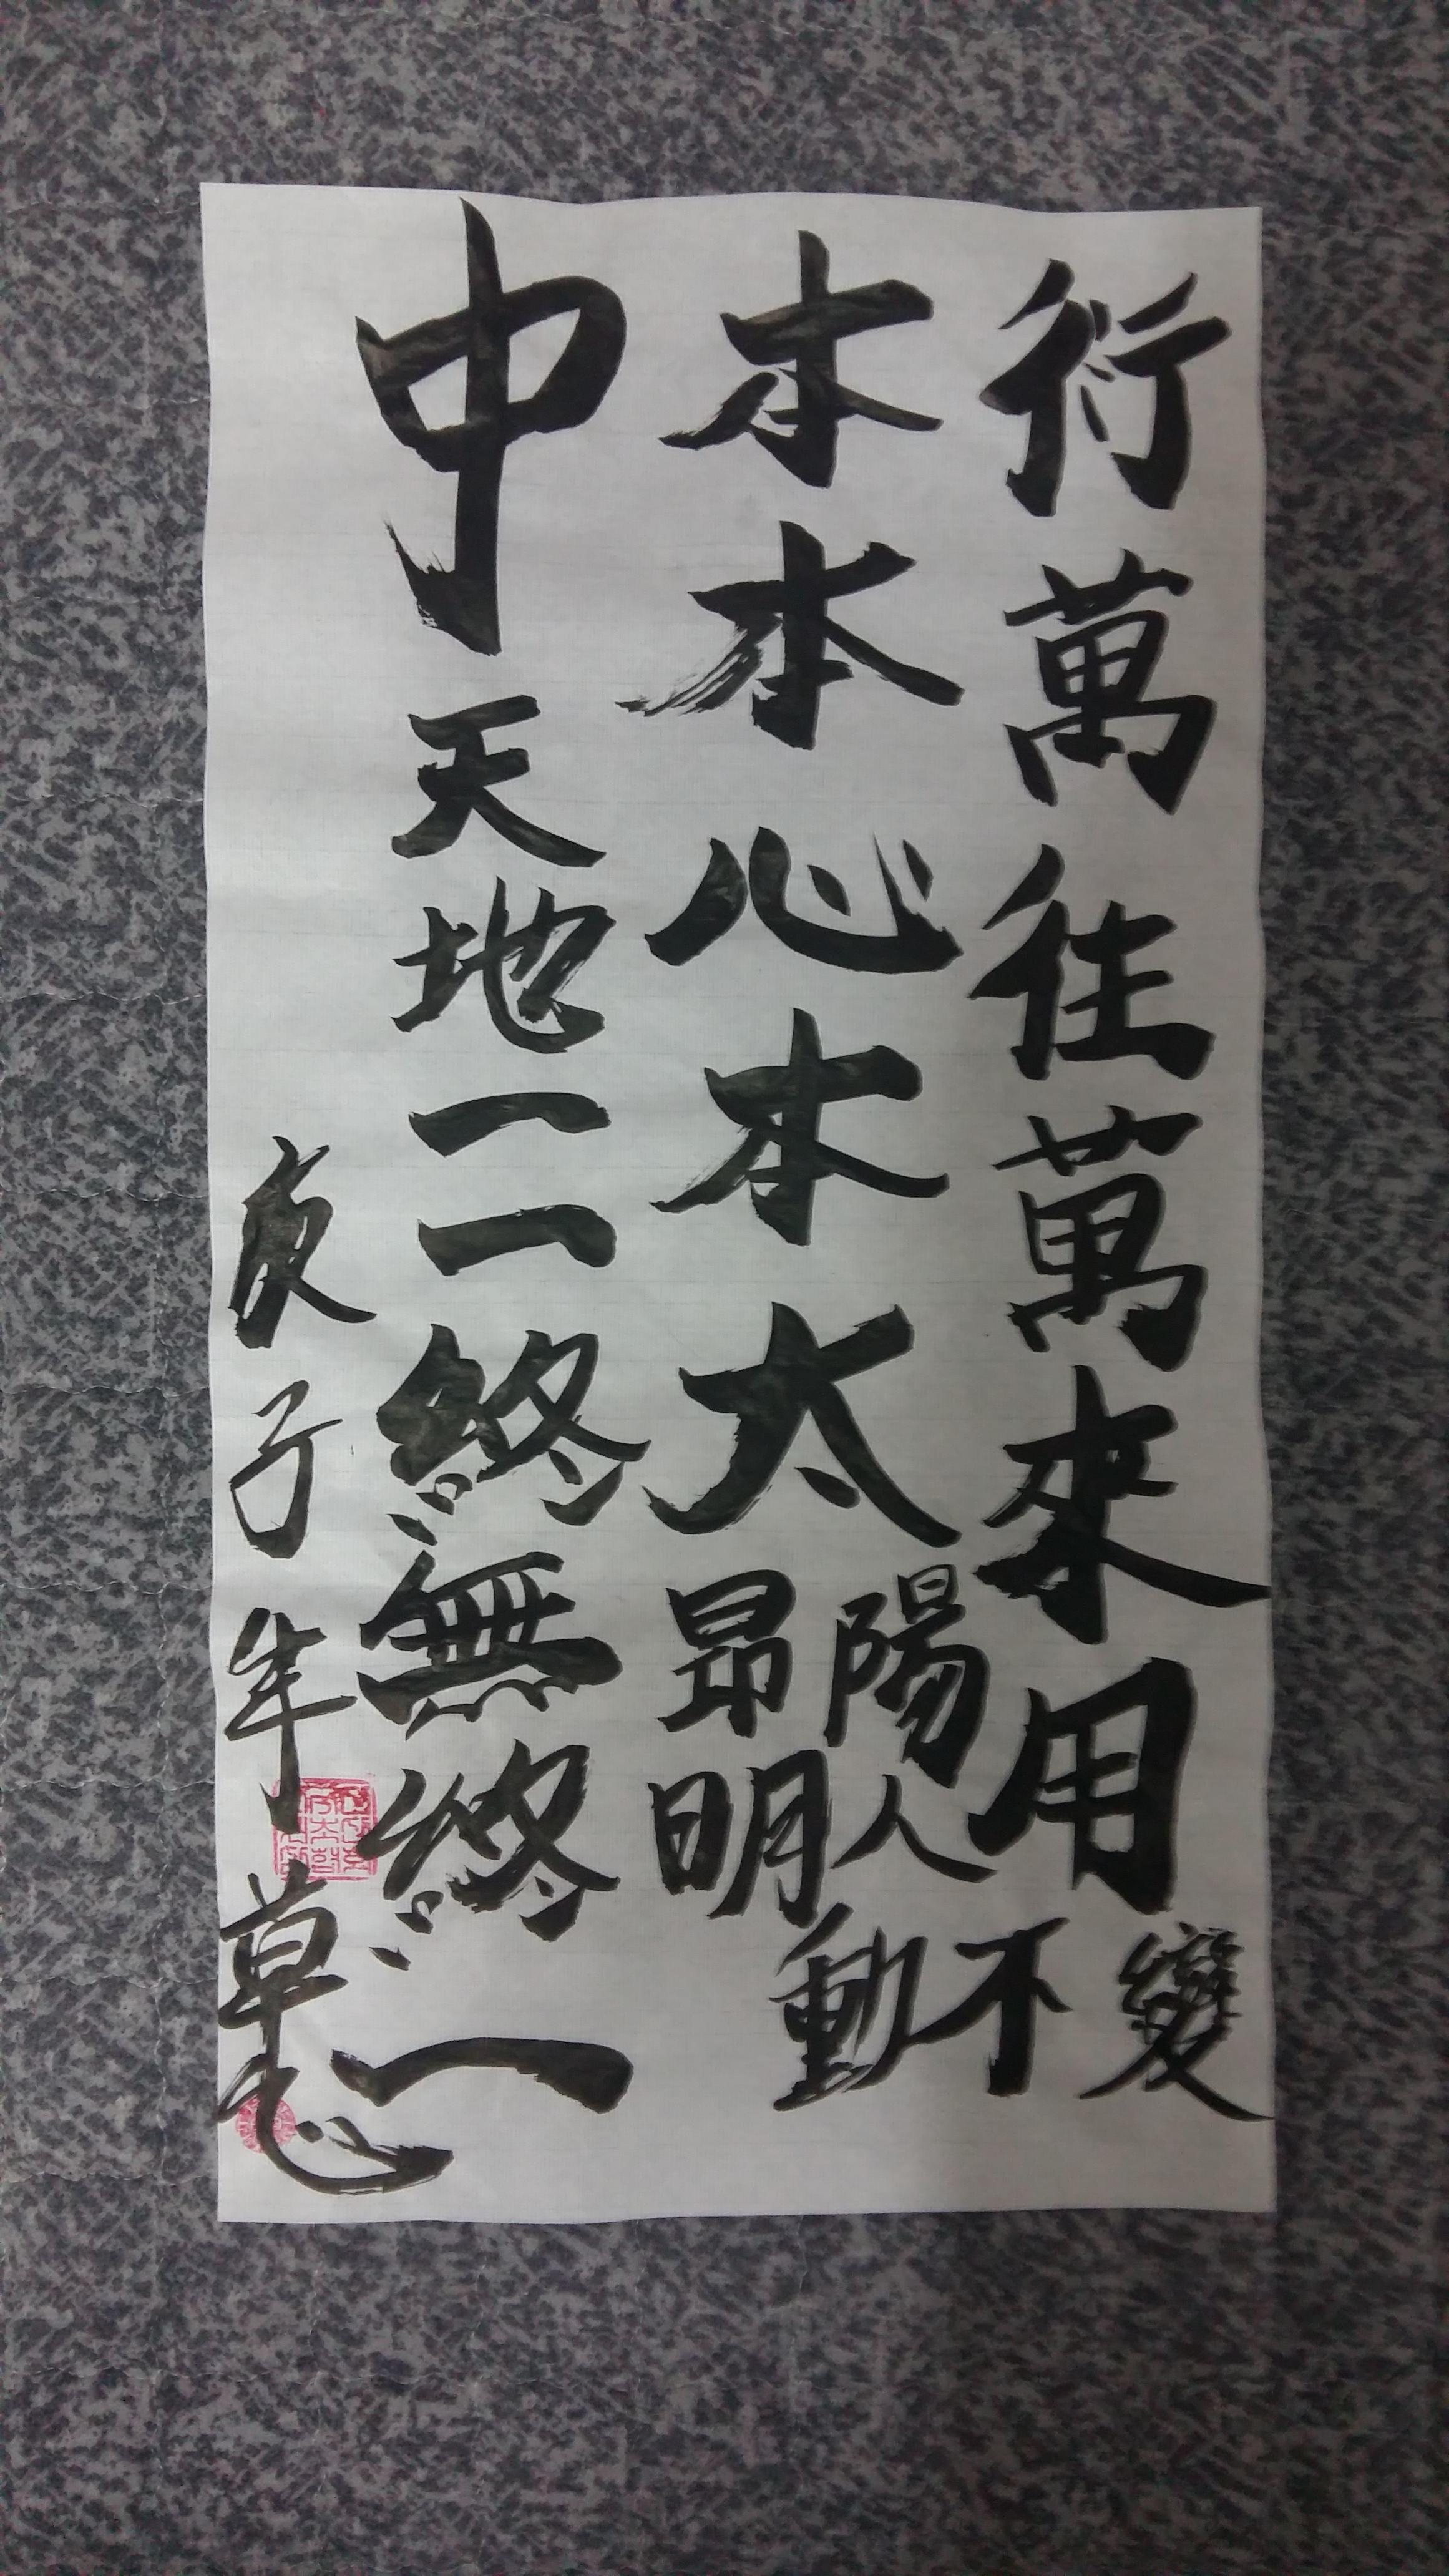 衍萬往萬來用變不動
本本心本太陽昂明人
中天地一一終無終一
庚子年 草心